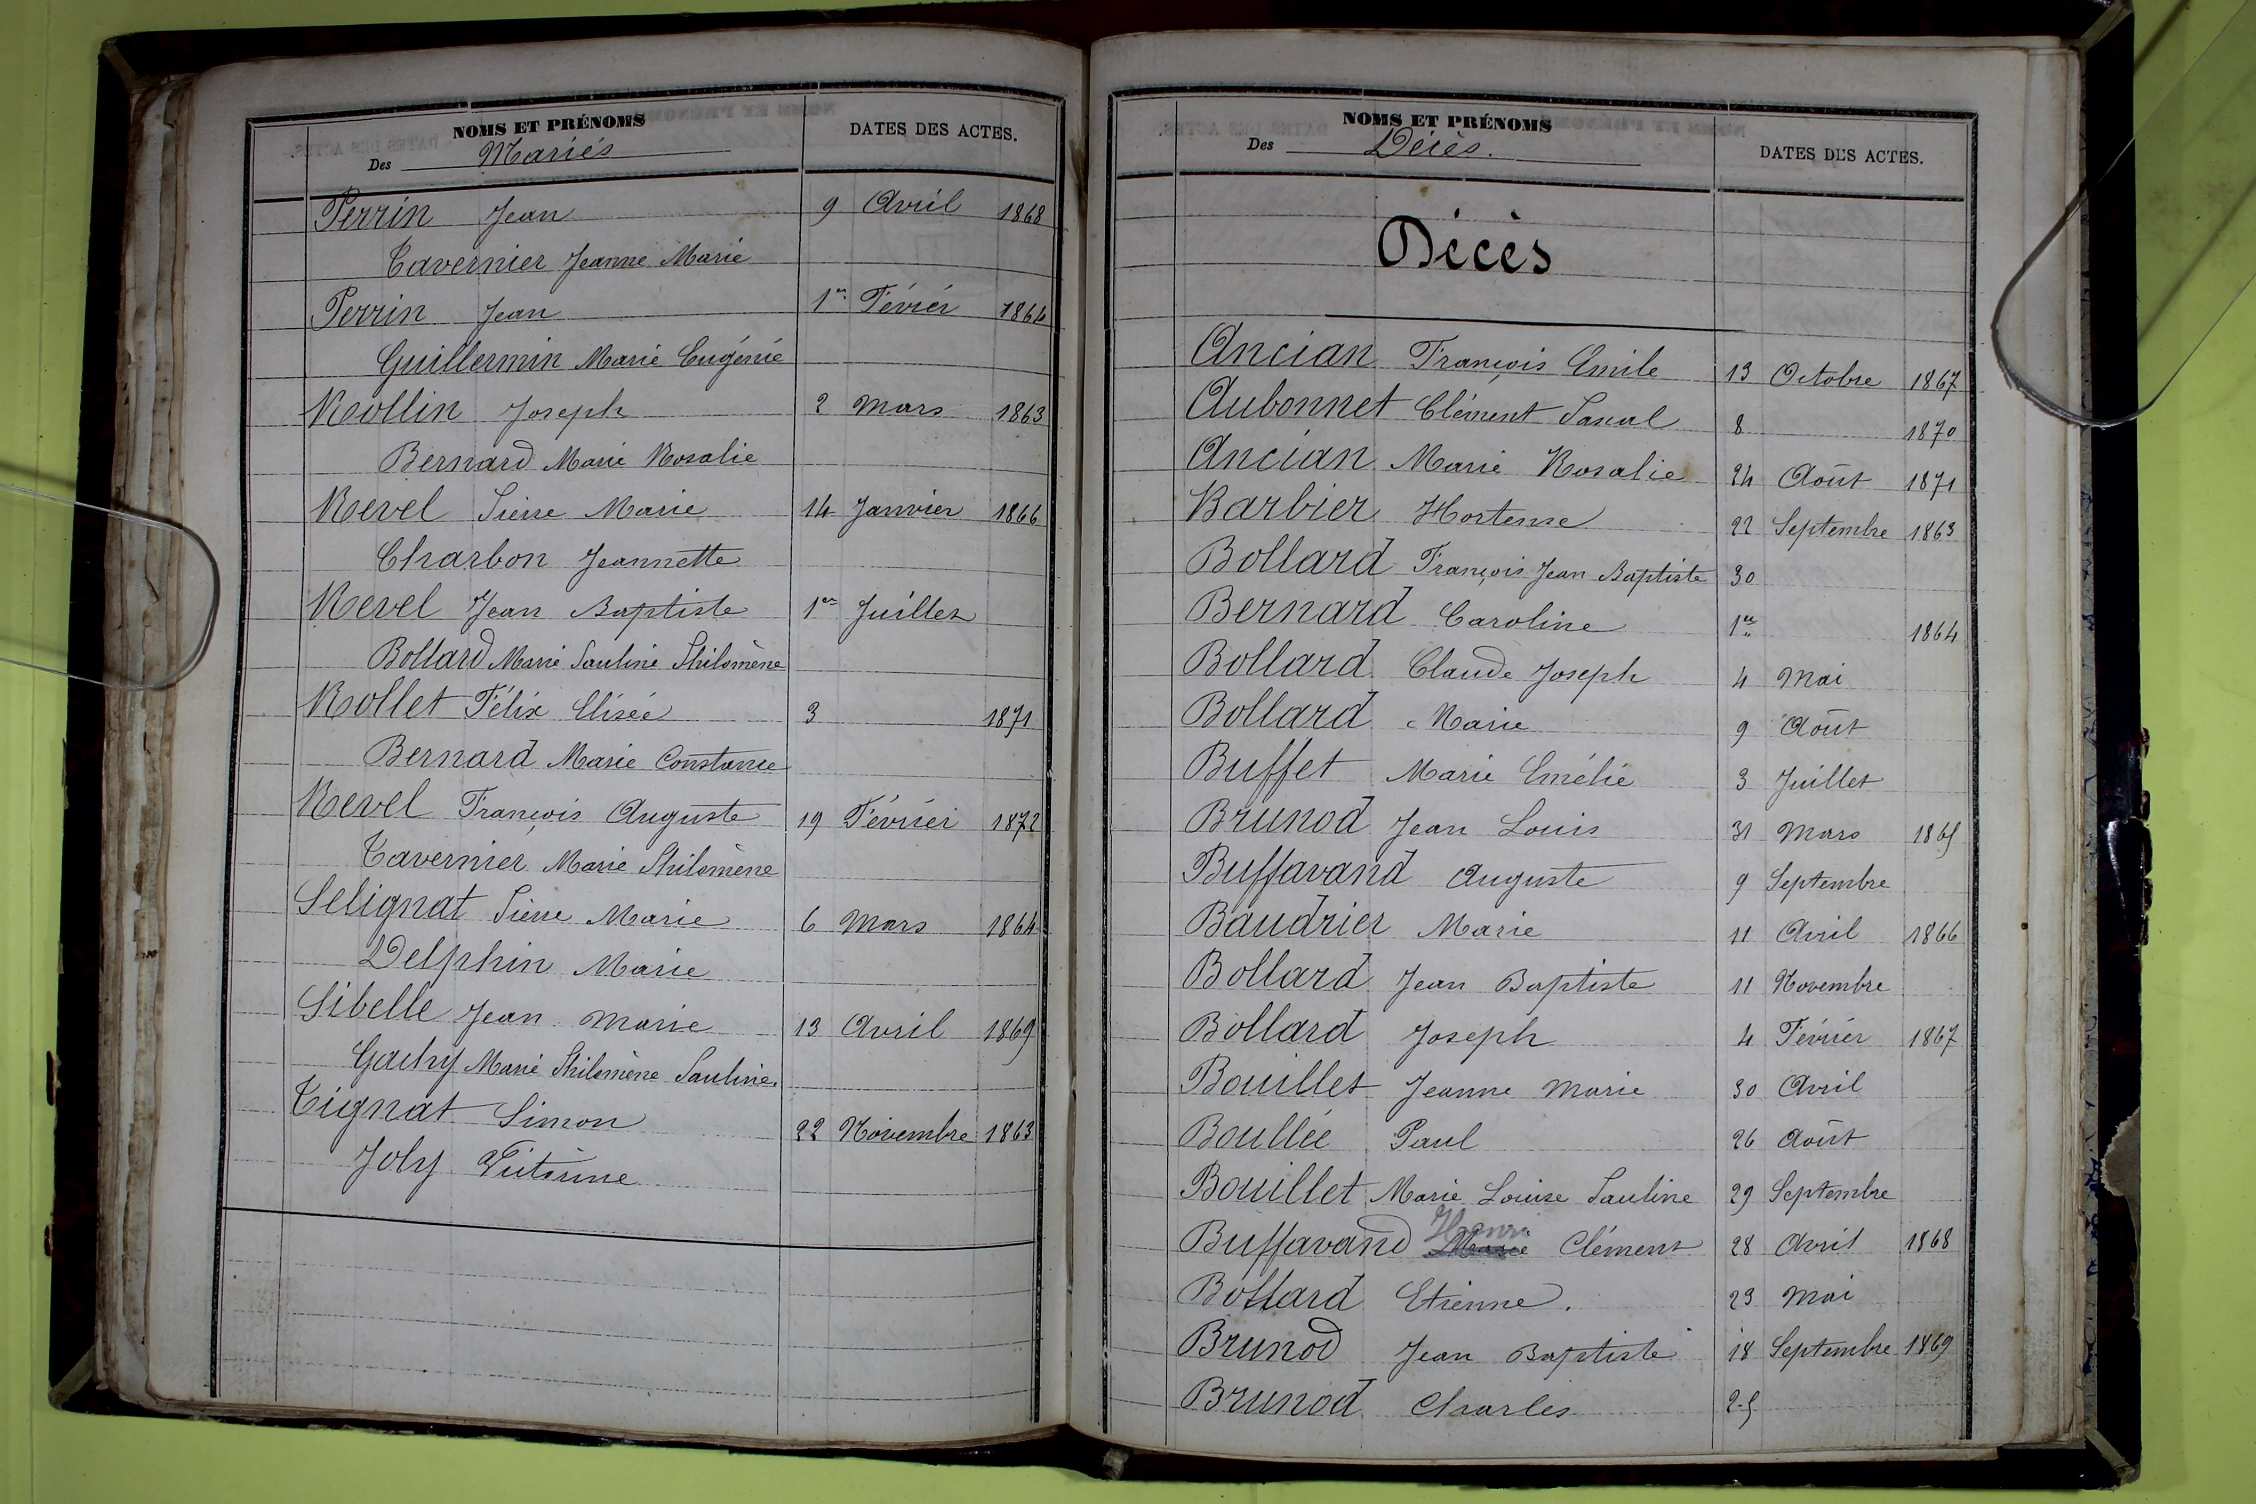 NOMS ET PRÉNOMS
DATES DES ACTES.
Des Mariés
Perrin Jean 9 Avril 1868
Tavernier Jeanne Marie
Perrin Jean 1er Févriér 1864
Guillermin Marie Eugénie
Rollin Joseph 2 Mars 1863
Bernard Marie Rosalie
Revel Pierre Marie 14 Janvier 1866
Charbon Jeannette
Revel Jean Baptiste 1er Juillet
Bollard Marie Pauline Philomène
Rollet Félix Elisée 3 1871
Bernard Marie Constance
Revel François Auguste 19 Février 1872
Tavernier Marie Philomène
Selignat Pierre Marie 6 Mars 1864
Delphin Marie
Sibelle Jean Marie 13 Avril 1869
Gachy Marie Philomène Pauline.
Tignat Simon 22 Novembre 1863
Joly
NOMS ET PRÉNOMS
DATES DES ACTES.
Des Décès.
Décès
Ancian François Emile 13 Octobre 1867
Aubonnet Clément Pascal 8 1870
Ancian Marie Rosalie 24 Août 1871
Barbier Hortense 22 Septembre 1863
Bollard François Jean Baptiste 30
Bernard Caroline 1er 1864
Bollard Claude Joseph 4 Mai
Bollard Marie 9 Août
Buffet Marie Emélie 3 Juillet
Brunod Jean Louis 31 Mars 1865
Buffavand Auguste 9 Septembre
Baudrier Marie 11 Avril 1866
Bollard Jean Baptiste 11 Novembre
Bollard Joseph 4 Février 1867
Bouillet Jeanne Marie 30 Avril
Boullée Paul 26 Août
Bouillet Marie Louise Pauline 29 Septembre
Henri
Buffavand Marie Clément 28 Avril 1868
Bollard Etienne. 23 Mai
Brunod Jean Baptiste 18 Septembre 1869
Brunod Charles 25